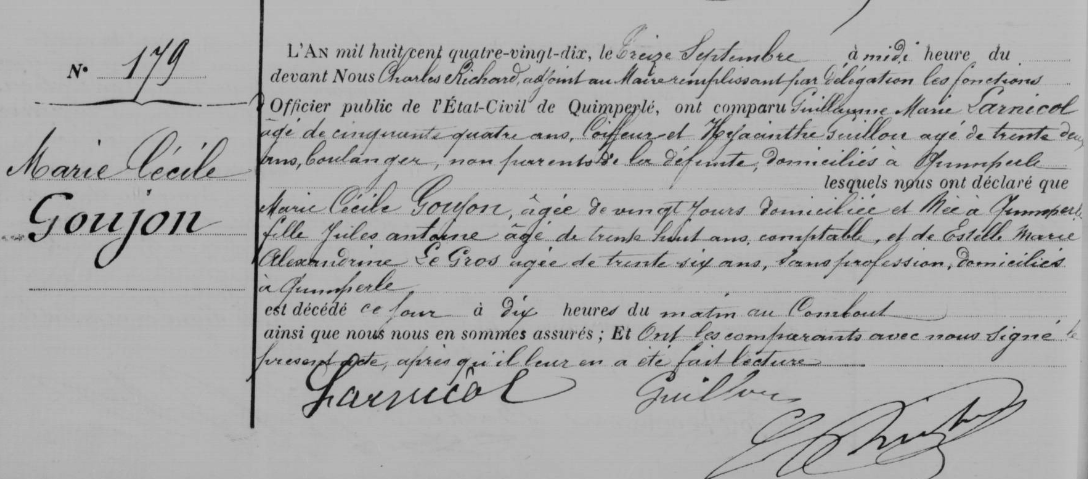 N° 179
Marie Cécile
Goujon
L'AN mil huit cent quatre-vingt-dix, le treize Septembre à midi heure du
devant Nous Charles Richard, adjoint au Maire remplissant par délégation les fonctions
Officier public de l'État-Civil de Quimperlé, ont comparu Guillaume Marie Larnicol
âgé de cinquante quatre ans, Coiffeur et Hyacinthe Guillou agé de trente deux
ans, boulanger, non parents de la défunte, domiciliés à Quimperle
lesquels nous ont déclaré que
Marie Cécile Goujon, âgée de vingt jours domiciliée et Née à Quimperlé
fille Jules antoine âgé de trente huit ans, comptable, et de Estelle Marie
Alexandrine Le Gros agée de trente six ans, sans profession, domiciliés
à Quimperle
est décédé ce jour à dix heures du matin au Combout
ainsi que nous nous en sommes assurés ; Et Ont les comparants avec nous signé le
présent acte, après qu'il leur en a été fait lecture
Larnicol Guillou